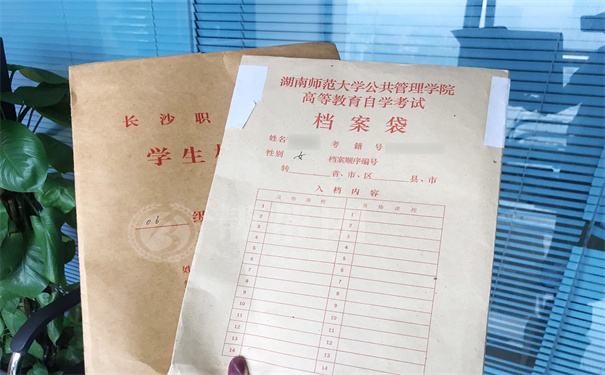 长沙职
学生
06 级
湖南师范大学公共管理学院
高等教育自学考试
档案袋
姓名 考籍号
性别 女 档案顺序编号
转 省、市、区 县、市
入档内容
1 1
2 2
3 3
4 4
5 5
6 6
7 7
8 8
9 9
10 10
11 11
12 12
13 13
14 14